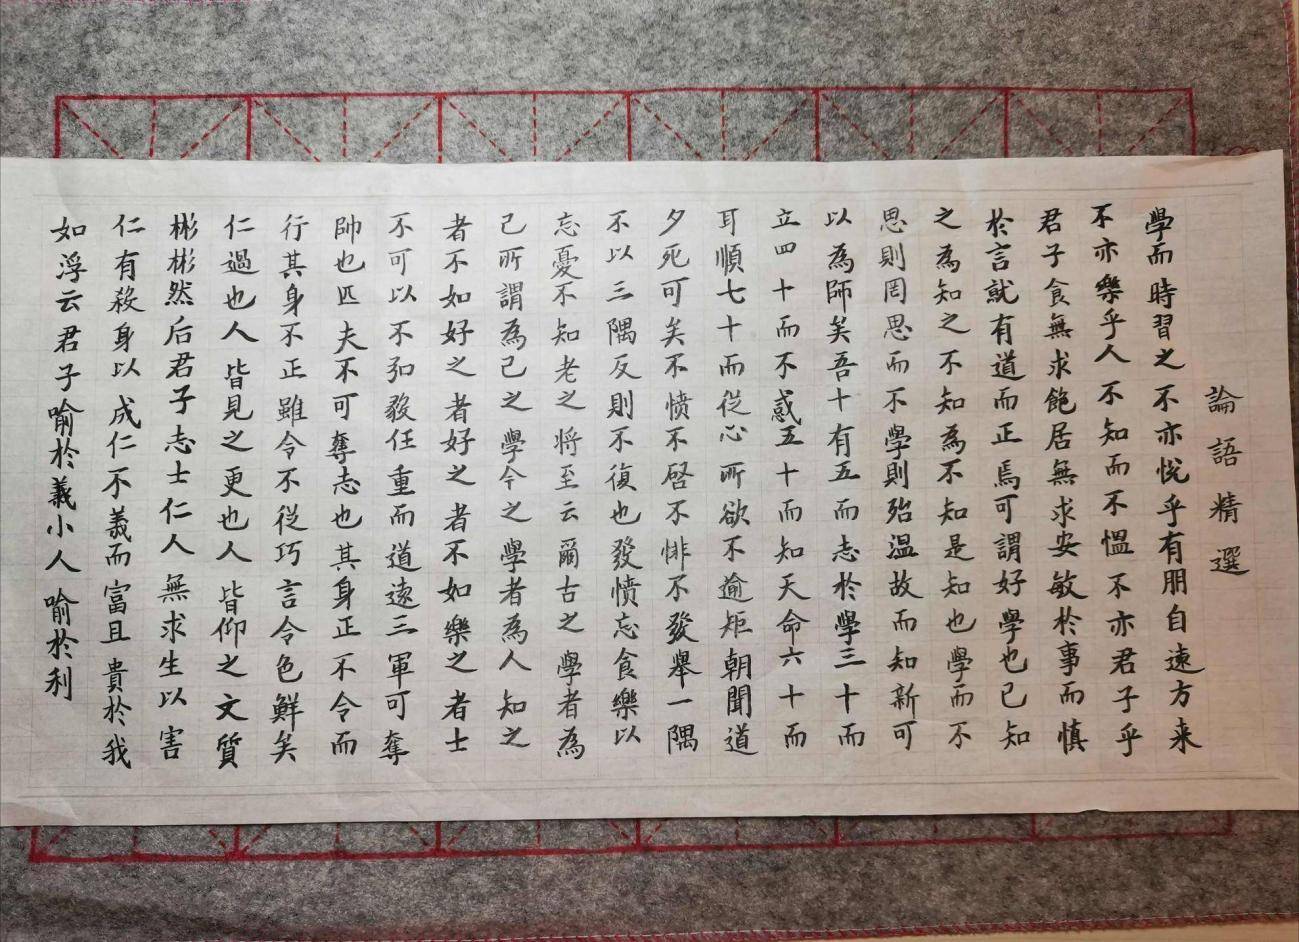 論語精選
學而時習之不亦悅乎有朋自遠方来
不亦樂乎人不知而不愠不亦君子乎
君子食無求飽居無求安敏於事而慎
於言就有道而正焉可謂好學也已知
之為知之不知為不知是知也學而不
思則罔思而不學則殆温故而知新可
以為師矣吾十有五而志於學三十而
立四十而不惑五十而知天命六十而
耳順七十而從心所欲不逾矩朝聞道
夕死可矣不憤不啓不悱不發舉一隅
不以三隅反則不復也發憤忘食樂以
忘憂不知老之将至云爾古之學者為
己所謂為己之學今之學者為人知之
者不如好之者好之者不如樂之者士
不可以不弘毅任重而道遠三軍可奪
帥也匹夫不可奪志也其身正不令而
行其身不正雖令不從巧言令色鮮矣
仁過也人皆見之更也人皆仰之文質
彬彬然后君子志士仁人無求生以害
仁有殺身以成仁不義而富且貴於我
如浮云君子喻於義小人喻於利